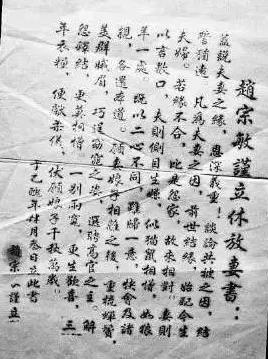 趙宗敏謹立休放妻書：
蓋說夫妻之緣，恩深義重！談論共被之因，結
誓遠。凡為夫妻之因，前世結緣，始配今生
夫婦。若緣不合，比是怨家，故來相對：妻則
以言數口，夫則側目生嫌，似猫鼠相憎，如狼
羊一處。既以二心不同，難歸一意，快會及諸
親，各還道。願妻娘子相離之後，重梳蟬鬢，
美娥眉，巧逞窈窕之姿，選聘高官之主。解
怨釋結，更莫相憎；一別兩寬，更生歡喜。三
年衣糧，便獻柔儀。伏願娘子千秋萬歲：
于乙年月叁日立此書
趙宗謹立